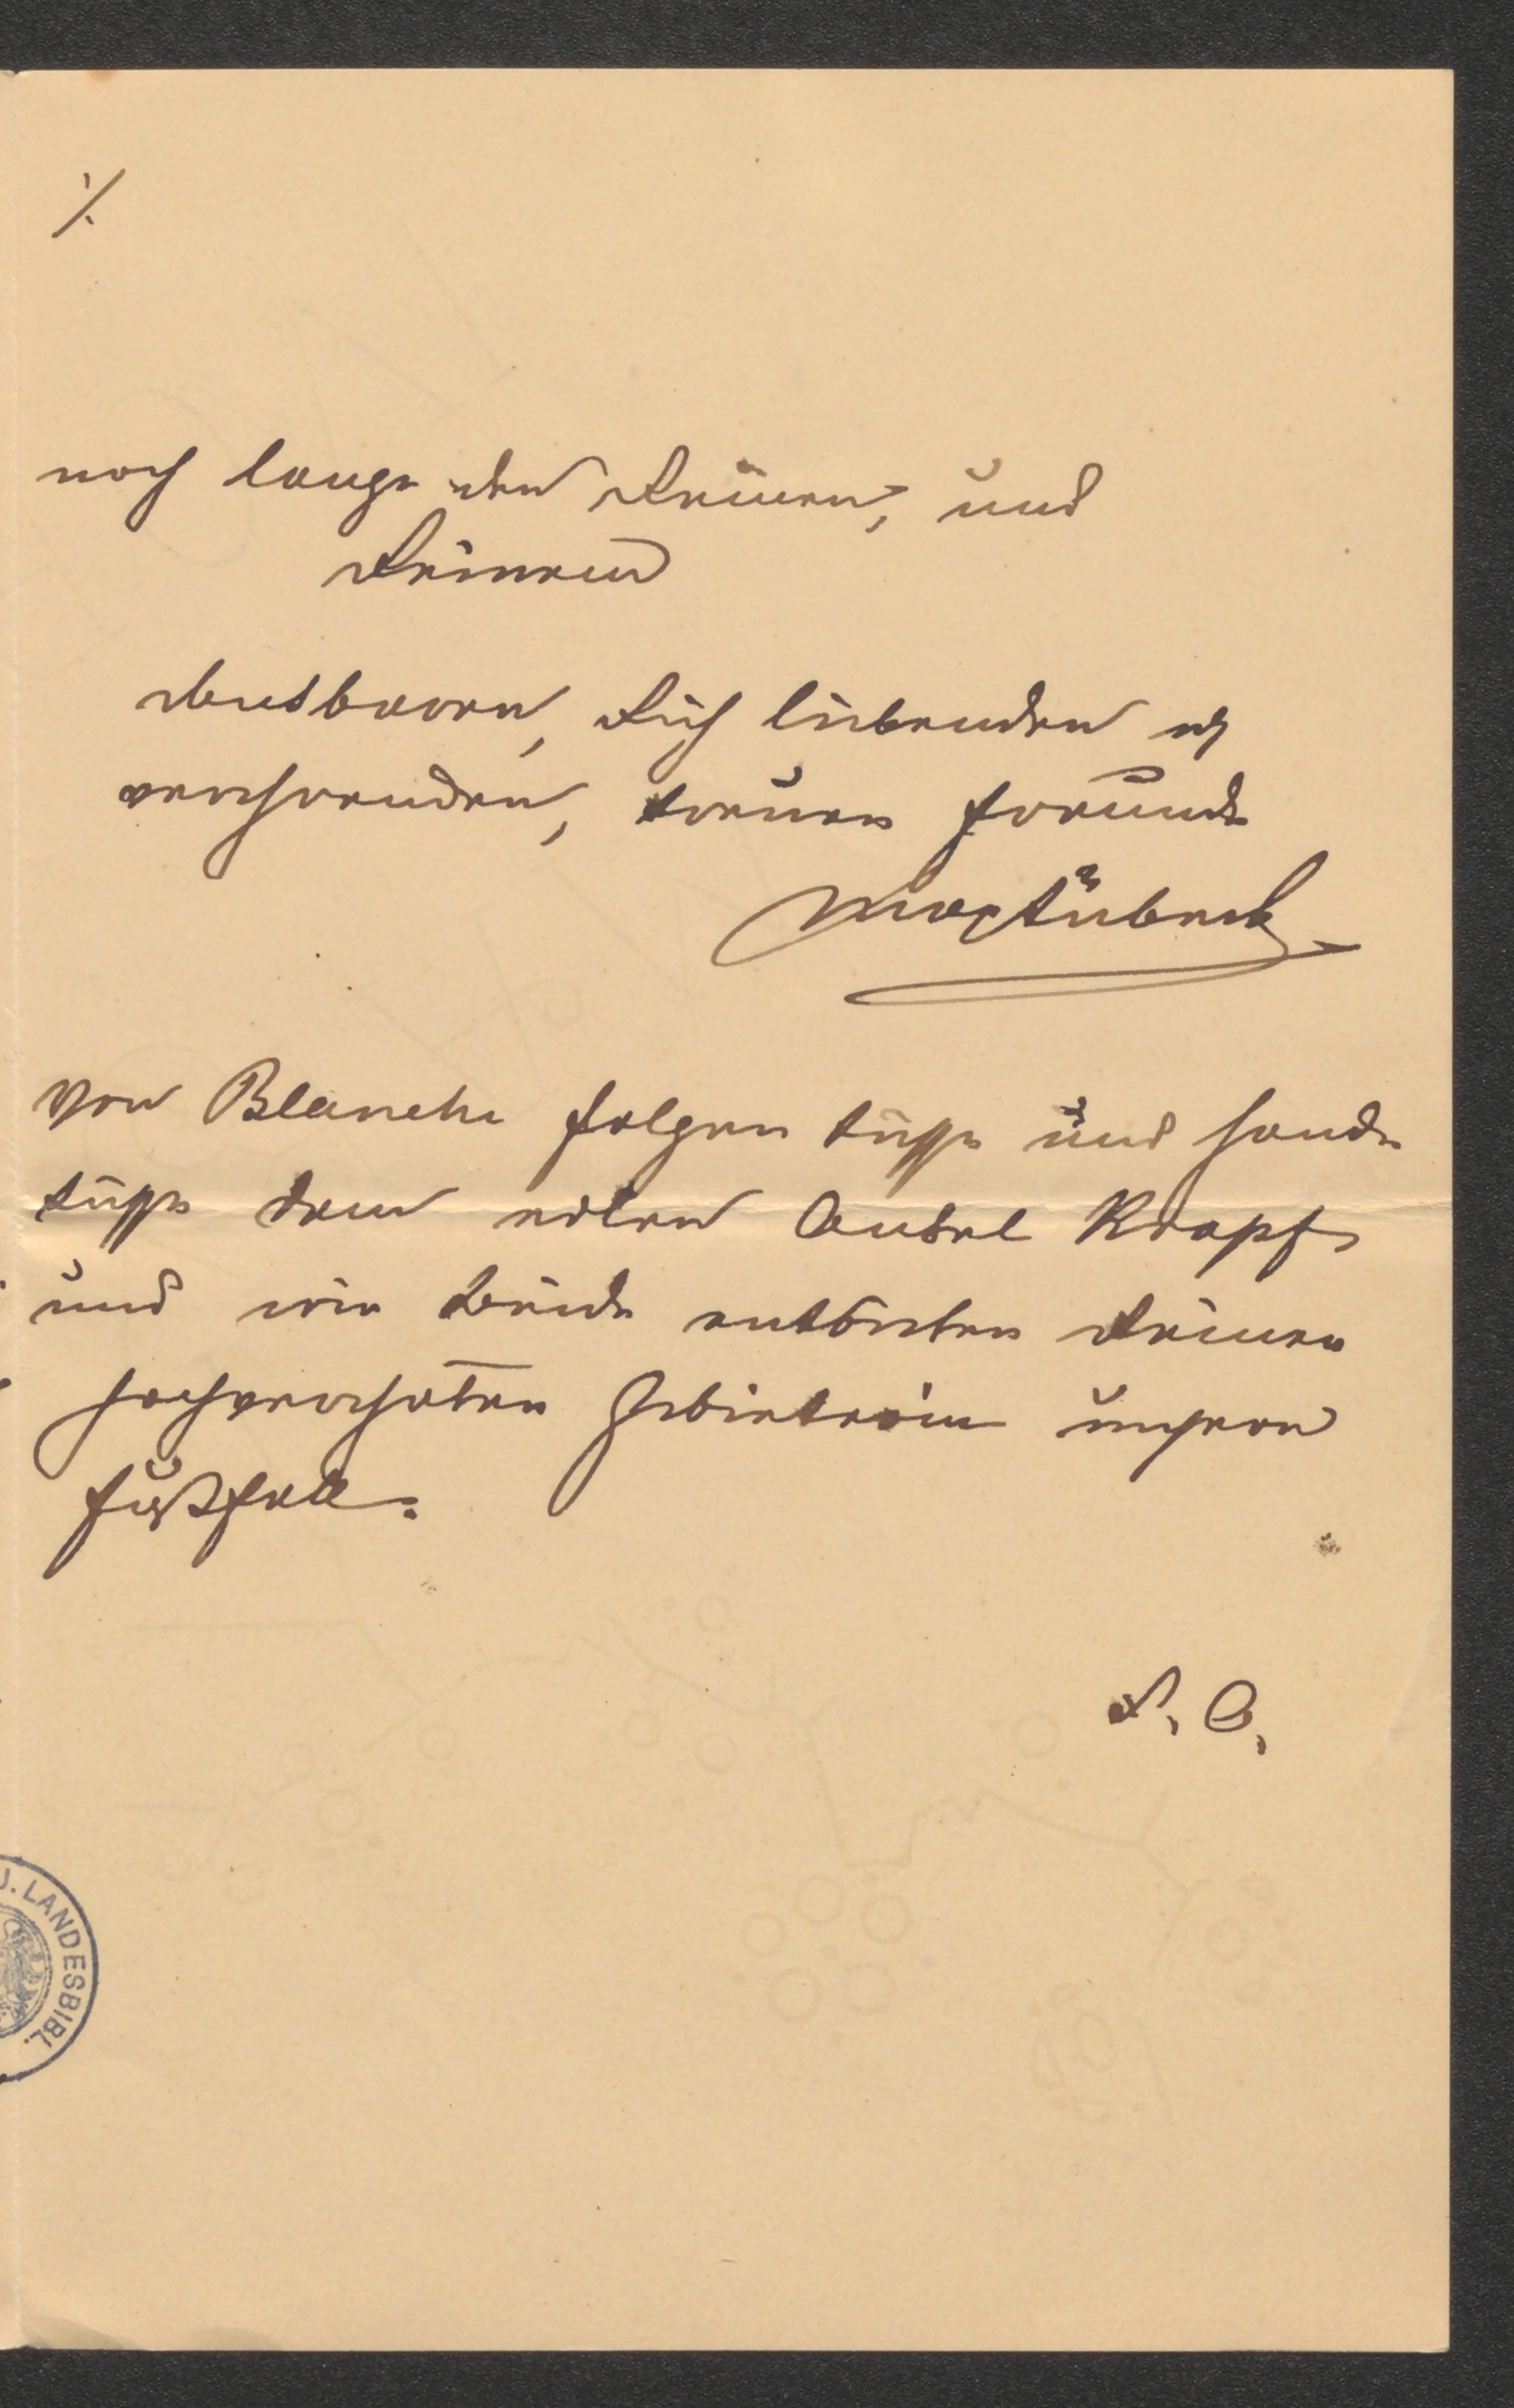 %
noch lange den Deinen, und
Deinem
dankbaren, Dich liebenden u
verehrenden, treuen Freunde
Max Kübeck
Von Blanche folgen Küsse und Hand-
küsse dem edlen Onkel Krapf
und wir beide entbieten Deiner
hochverehrten Gebieterin unseren
Fußfall.
D. O.
D. LANDESBIBL.